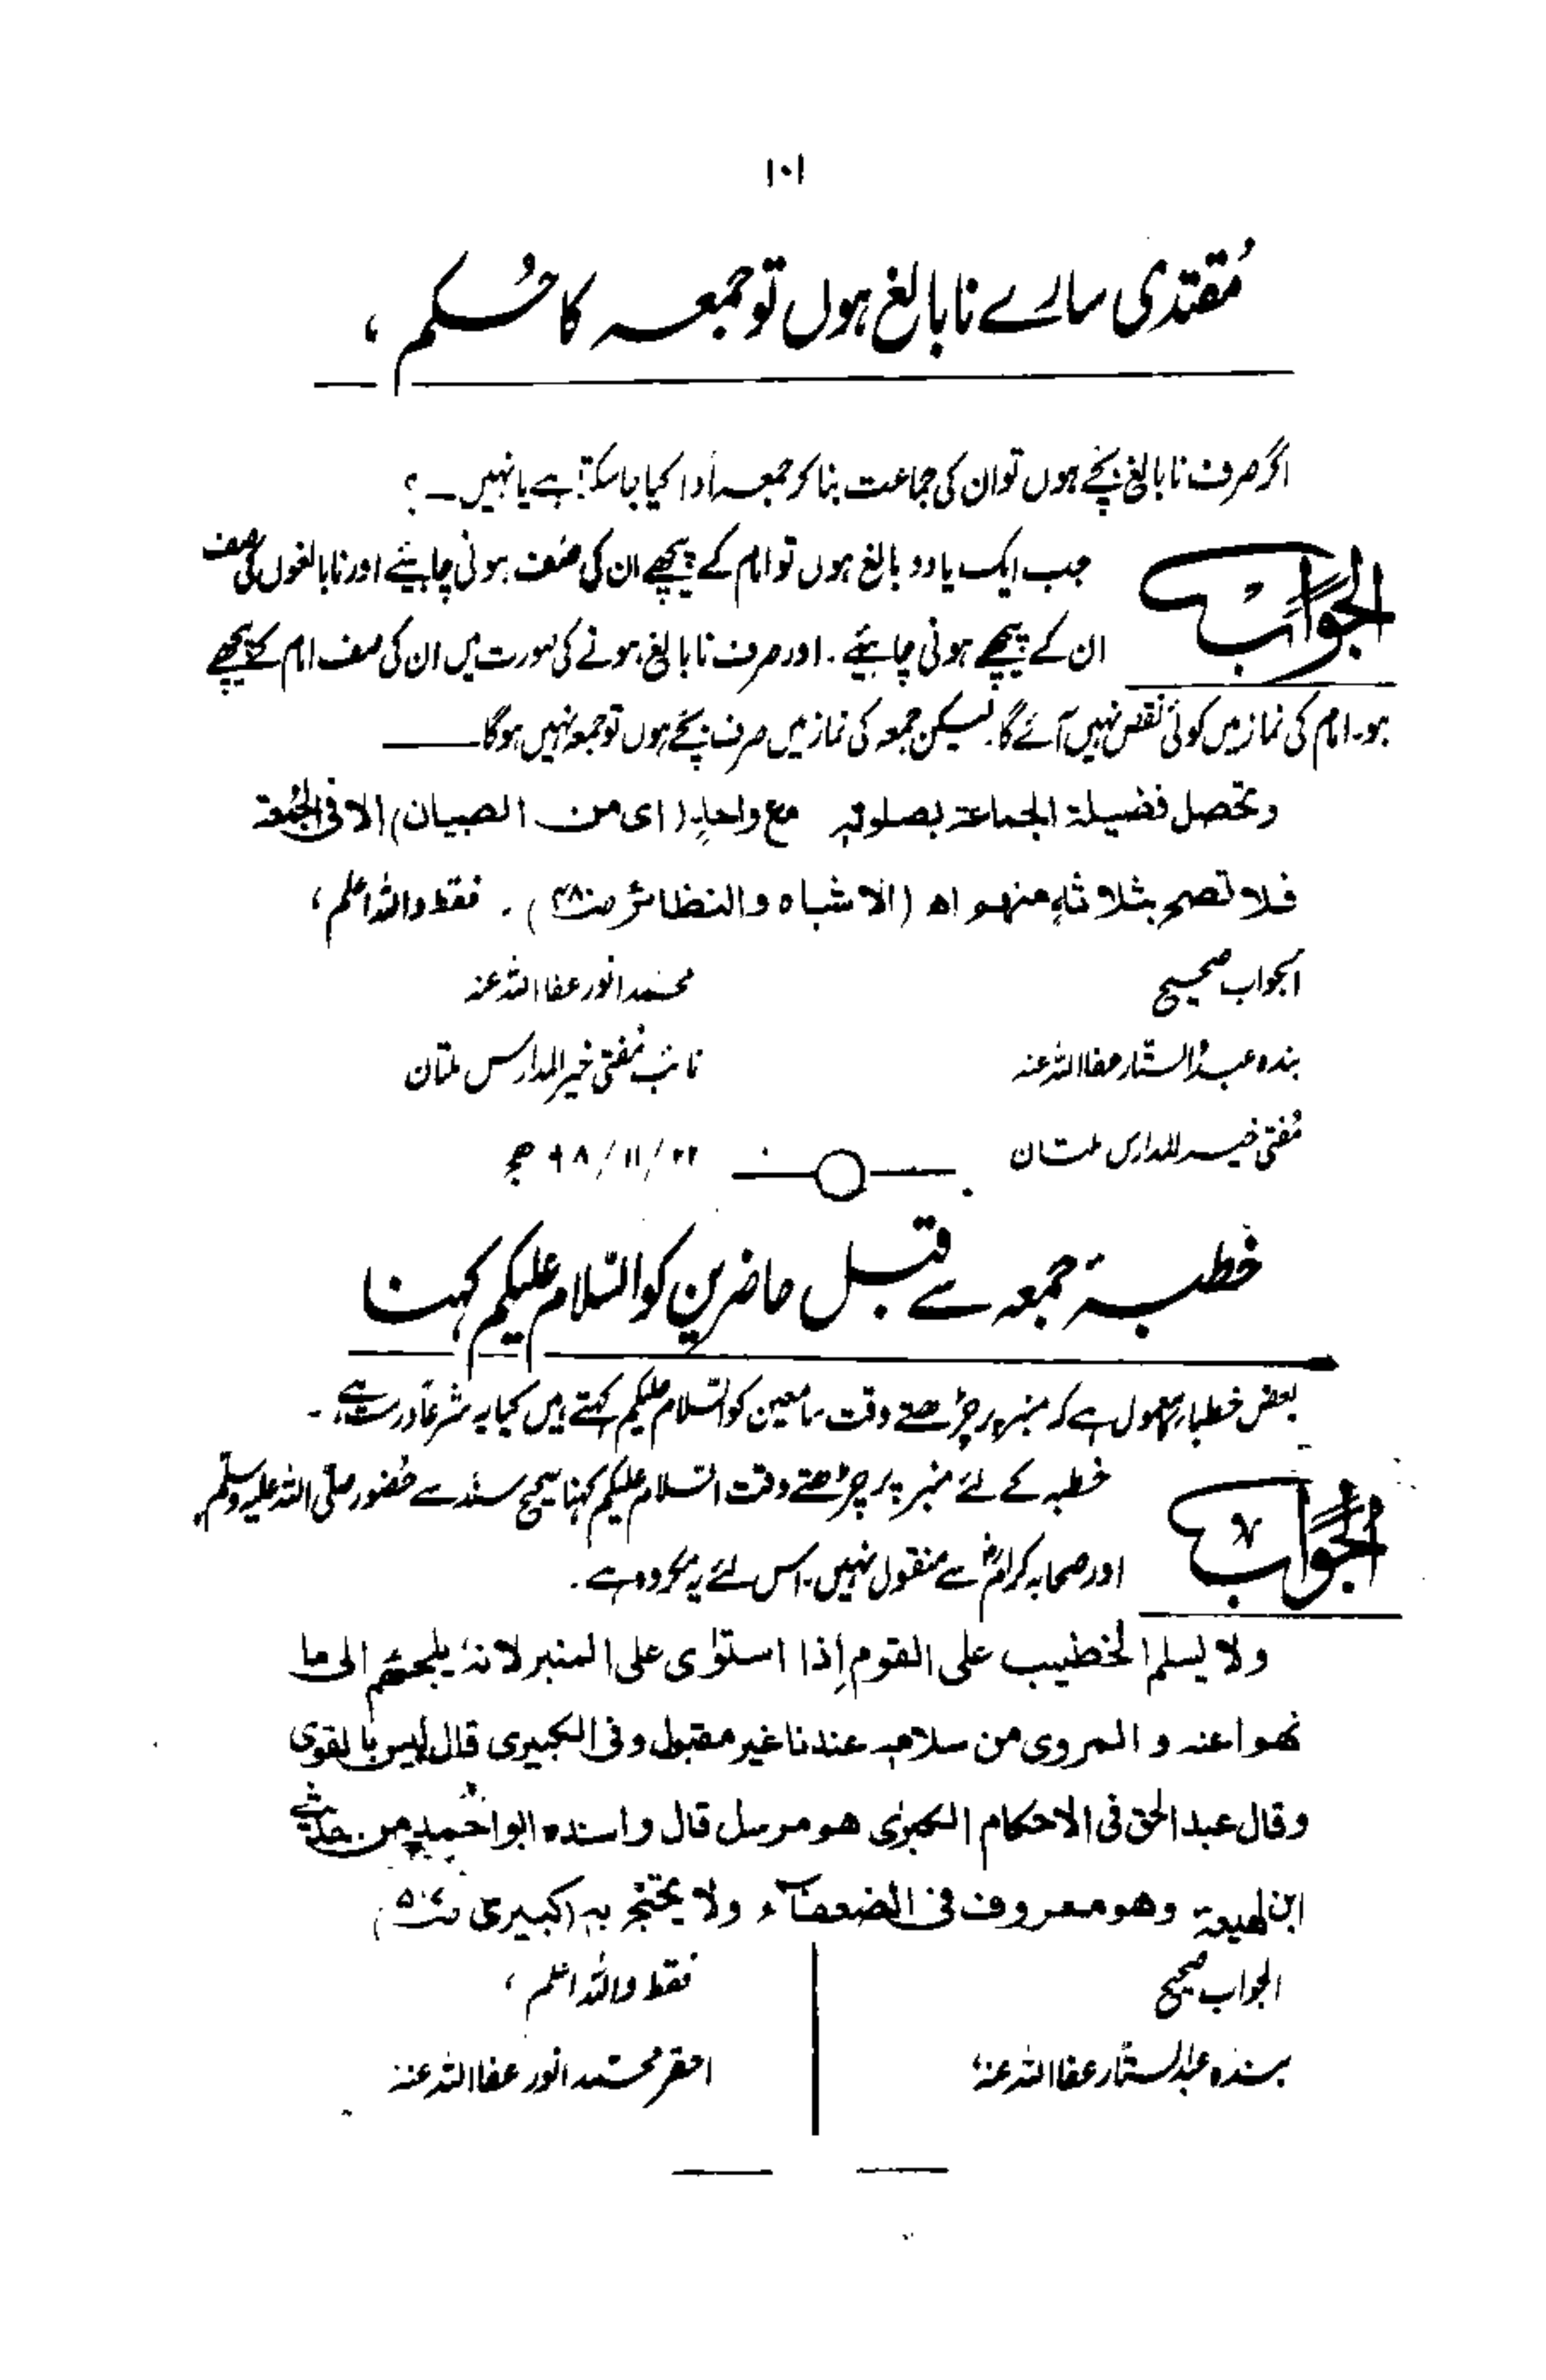 ۱۰۱
مُقتدی سارے نابالغ ہوں تو جمعہ کا حُکم ،
اگر صرف نابالغ بچے ہوں تو ان کی جماعت بنا کر جمعہ ادا کیا جا سکتا ہے یا نہیں ۔ ؟
الجواب
جب ایک یا دو بالغ ہوں تو امام کے پیچھے ان کی صف ہونی چاہیئے اور نابالغوں کی صف
ان کے پیچھے ہونی چاہیئے ۔ اور صرف نابالغ ہونے کی صورت میں ان کی صف امام کے پیچھے
ہو۔ امام کی نماز میں کوئی نقص نہیں آئے گا۔ لیکن جمعہ کی نماز میں صرف بچے ہوں تو جمعہ نہیں ہوگا
وتحصل فضیلۃ الجماعۃ بصلوتہ مع واحدٍ (ای من الصبیان) الا فی الجُمُعۃ
فلا تصح بثلاثۃٍ منہم اھ (الاشباہ والنظائر) ۔ فقط واللہ اعلم ،
الجواب صحیح
محمد انور عفا اللہ عنہ
بندہ عبدالستار عفا اللہ عنہ
نائب مُفتی خیر المدارس ملتان
مُفتی خیر المدارس ملتان
۲۲/۱۱/۹۸ ھج
خطبۂ جمعہ سے قبل حاضرین کو السّلام علیکم کہنا
بعض خطباء معمول ہے کہ منبر پر چڑھتے وقت سامعین کو السّلام علیکم کہتے ہیں کیا یہ شرعًا درست ہے ۔
الجواب
خطبہ کے لئے منبر پر چڑھتے وقت السّلام علیکم کہنا صحیح سند سے حضور صلی اللہ علیہ وسلم
اور صحابہ کرامؓ سے منقول نہیں ۔ اس لئے یہ مکروہ ہے ۔
ولا یسلم الخطیب علی القوم اِذا استوٰی علی المنبر لانہٗ یلجئہم الی ما
نھوا عنہ والمروی من سلامہ عندنا غیر مقبول وفی الکبیری قال لیس بالقوی
وقال عبدالحق فی الاحکام الکبرٰی ھو مرسل قال واسندہ ابو احمد من حدیث
ابن لھیعۃ وھو معروف فی الضعفآء ولا یحتج بہ (کبیری)
الجواب صحیح
فقط واللہ اعلم ،
بندہ عبدالستّار عفا اللہ عنہ
احقر محمد انور عفا اللہ عنہ